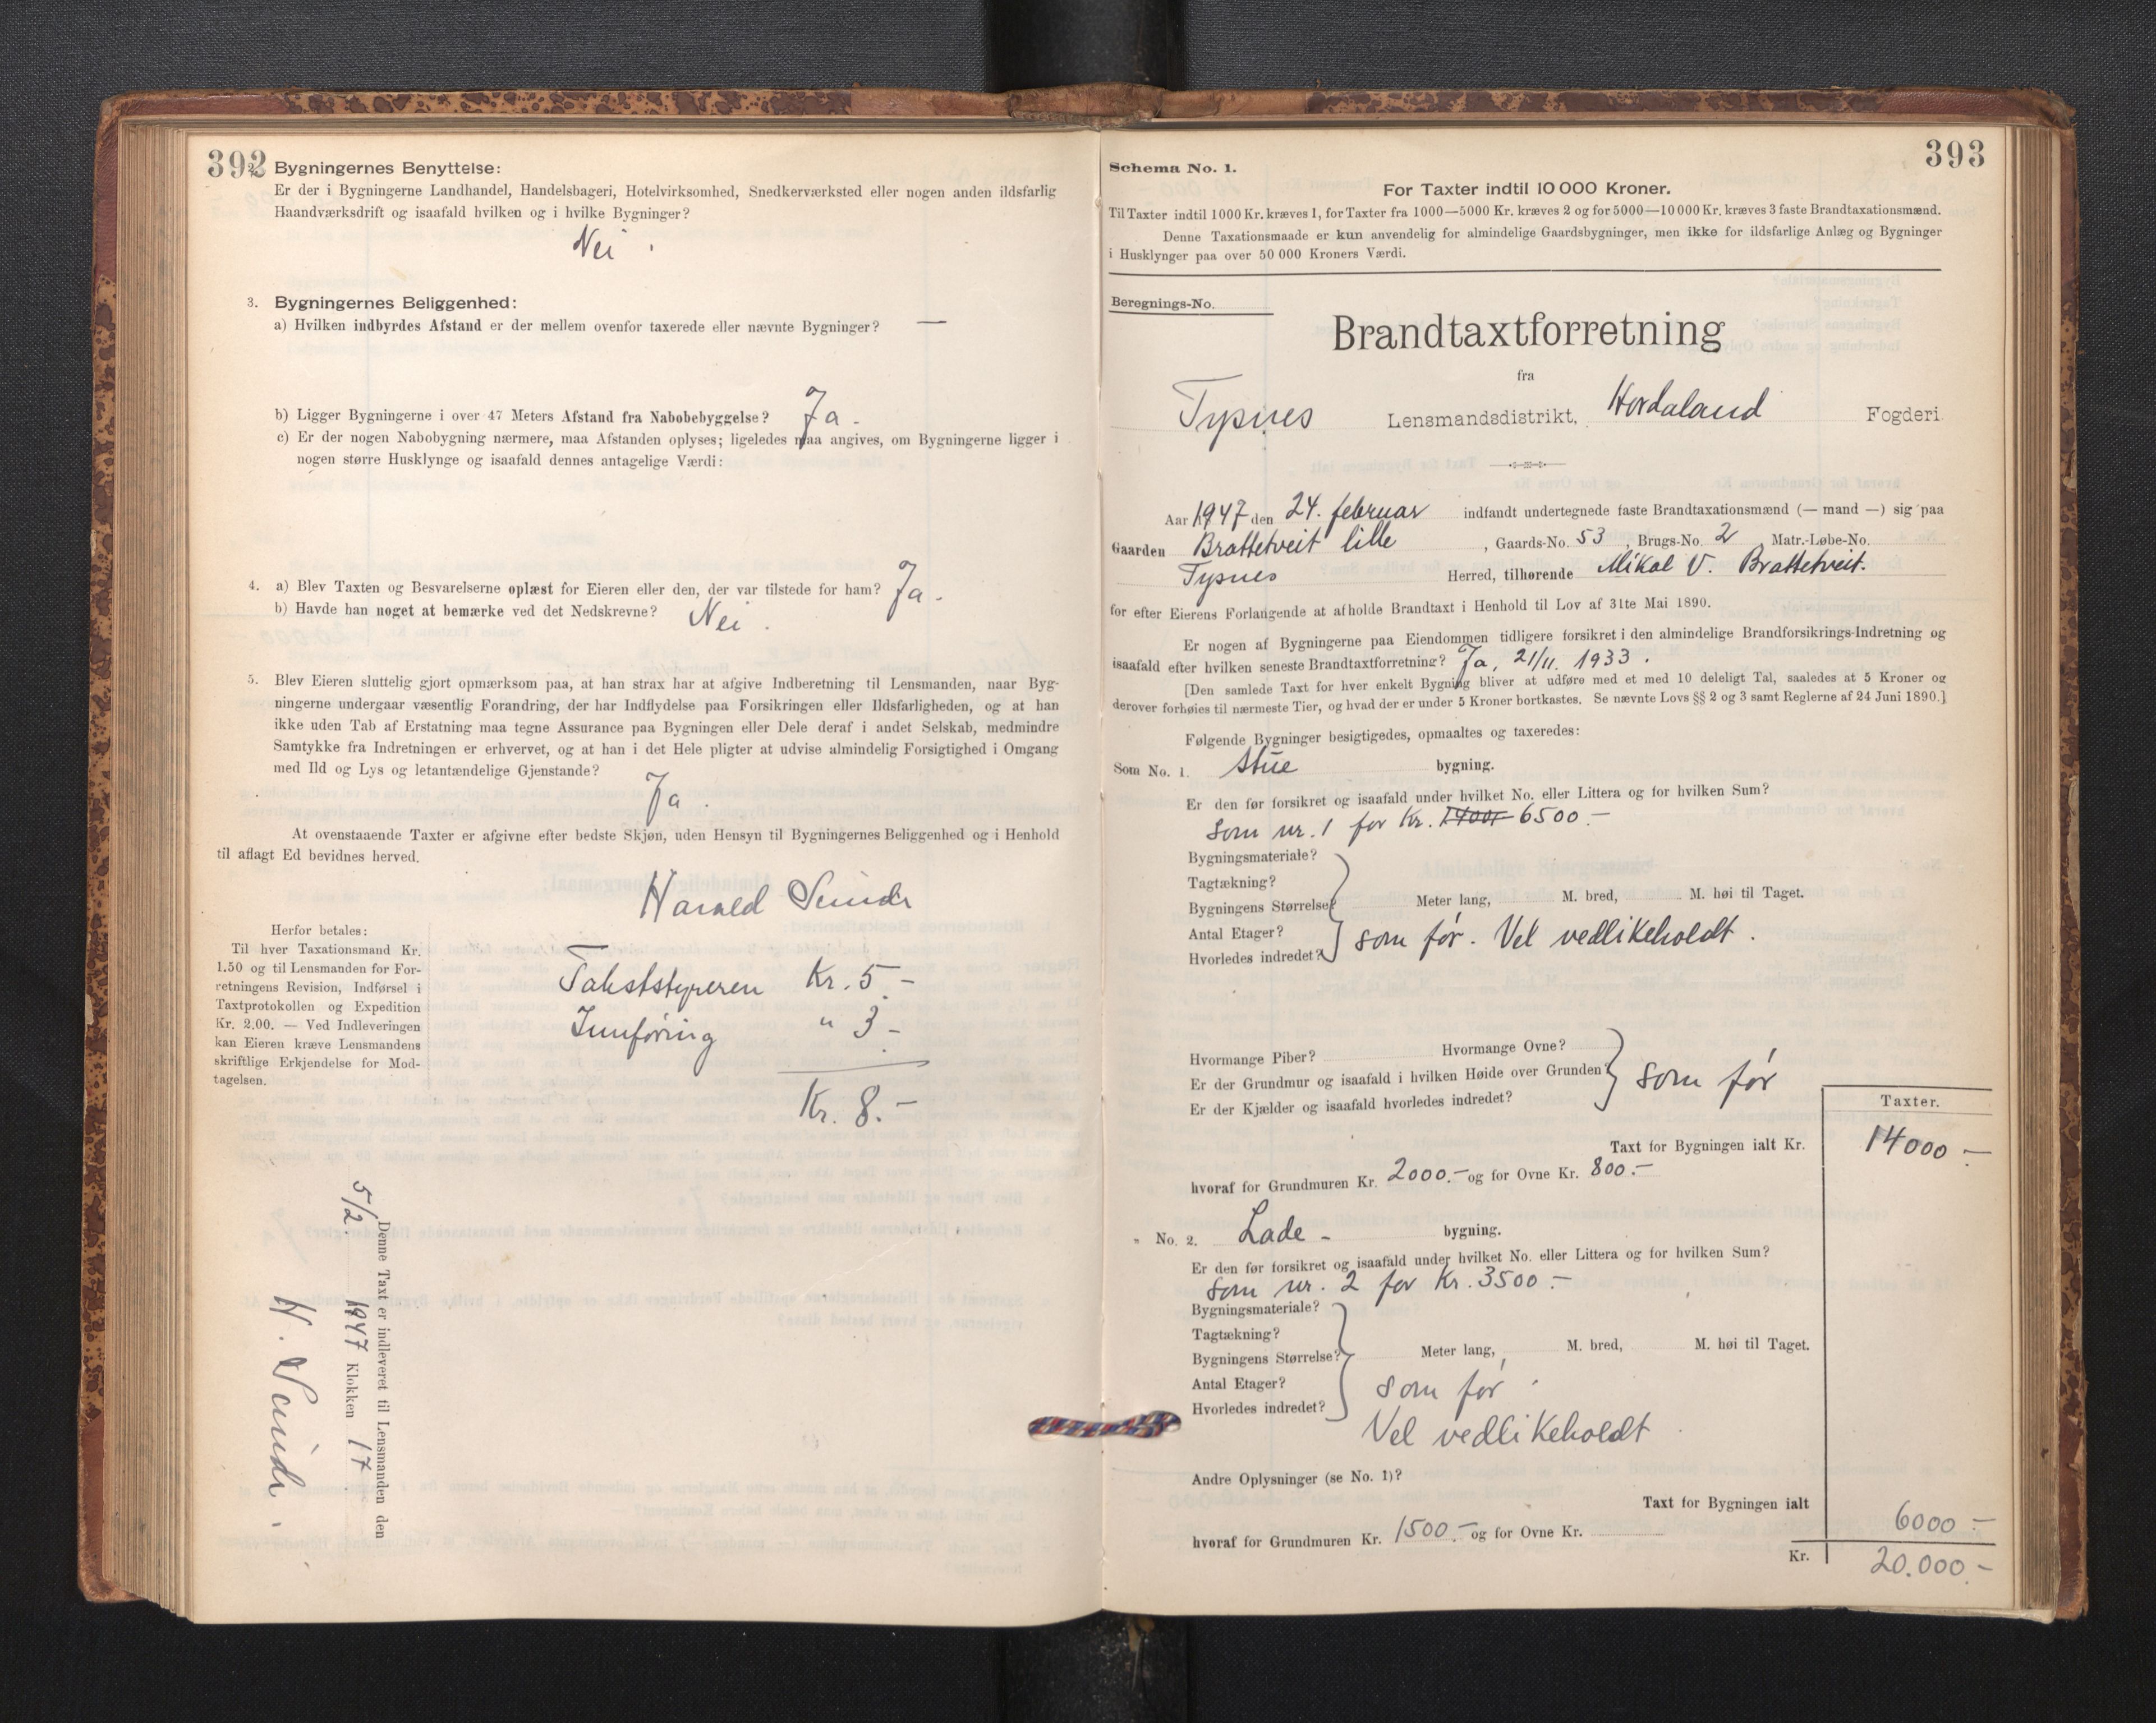 392
2. Bygningernes Benyttelse:
Er der i Bygningerne Landhandel, Handelsbageri, Hotelvirksomhed, Snedkerværksted eller nogen anden ildsfarlig
Haandværksdrift og isaafald hvilken og i hvilke Bygninger?
Nei.
3. Bygningernes Beliggenhed:
a) Hvilken indbyrdes Afstand er der mellem ovenfor taxerede eller nævnte Bygninger? —
b) Ligger Bygningerne i over 47 Meters Afstand fra Nabobebyggelse? Ja.
c) Er der nogen Nabobygning nærmere, maa Afstanden oplyses; ligeledes maa angives, om Bygningerne ligger i
nogen større Husklynge og isaafald dennes antagelige Værdi:
4. a) Blev Taxten og Besvarelserne oplæst for Eieren eller den, der var tilstede for ham? Ja.
b) Havde han noget at bemærke ved det Nedskrevne? Nei.
5. Blev Eieren sluttelig gjort opmærksom paa, at han strax har at afgive Indberetning til Lensmanden, naar Byg-
ningerne undergaar væsentlig Forandring, der har Indflydelse paa Forsikringen eller Ildsfarligheden, og at han
ikke uden Tab af Erstatning maa tegne Assurance paa Bygningen eller Dele deraf i andet Selskab, medmindre
Samtykke fra Indretningen er erhvervet, og at han i det Hele pligter at udvise almindelig Forsigtighed i Omgang
med Ild og Lys og letantændelige Gjenstande?
Ja.
At ovenstaaende Taxter er afgivne efter bedste Skjøn, uden Hensyn til Bygningernes Beliggenhed og i Henhold
til aflagt Ed bevidnes herved.
Harald
Herfor betales:
Til hver Taxationsmand Kr.
1.50 og til Lensmanden for For-
retningens Revision, Indførsel i
Taxtprotokollen og Expedition
Kr. 2.00. — Ved Indleveringen
kan Eieren kræve Lensmandens
skriftlige Erkjendelse for Mod-
tagelsen.
Takststyreren Kr. 5.-
Innføring " 3.-
Kr. 8.-
Denne Taxt er indleveret til Lensmanden den
5/2 1947 Klokken 17
H.
393
Schema No. 1.
For Taxter indtil 10 000 Kroner.
Til Taxter indtil 1000 Kr. kræves 1, for Taxter fra 1000—5000 Kr. kræves 2 og for 5000—10 000 Kr. kræves 3 faste Brandtaxationsmænd.
Denne Taxationsmaade er kun anvendelig for almindelige Gaardsbygninger, men ikke for ildsfarlige Anlæg og Bygninger
i Husklynger paa over 50 000 Kroners Værdi.
Beregnings-No.
Brandtaxtforretning
fra
Tysnes Lensmandsdistrikt, Hordaland Fogderi
Aar 1947 den 24. februar indfandt undertegnede faste Brandtaxationsmænd (— mand —) sig paa
Gaarden Brattetveit lille, Gaards-No. 53, Brugs-No. 2 Matr.-Løbe-No.
Tysnes Herred, tilhørende Mikal V. Brattetveit.
for efter Eierens Forlangende at afholde Brandtaxt i Henhold til Lov af 31te Mai 1890.
Er nogen af Bygningerne paa Eiendommen tidligere forsikret i den almindelige Brandforsikrings-Indretning og
isaafald efter hvilken seneste Brandtaxtforretning? Ja, 21/11. 1933.
[Den samlede Taxt for hver enkelt Bygning bliver at udføre med et med 10 deleligt Tal, saaledes at 5 Kroner og
derover forhøies til nærmeste Tier, og hvad der er under 5 Kroner bortkastes. Se nævnte Lovs §§ 2 og 3 samt Reglerne af 24 Juni 1890.]
Følgende Bygninger besigtigedes, opmaaltes og taxeredes:
Som No. 1. Stue bygning.
Er den før forsikret og isaafald under hvilket No. eller Littera og for hvilken Sum?
Som nr. 1 for Kr. 6500.-
Bygningsmateriale?
Tagtækning?
Bygningens Størrelse? Meter lang, M. bred, M. høi til Taget.
Antal Etager?
Hvorledes indredet? som før. Vel vedlikeholdt.
Hvormange Piber? Hvormange Ovne?
Er der Grundmur og isaafald i hvilken Høide over Grunden? som før
Er der Kjælder og isaafald hvorledes indredet?
Taxter.
Taxt for Bygningen ialt Kr. 14000.-
hvoraf for Grundmuren Kr. 2000.- og for Ovne Kr. 800.-
" No. 2. Lade - bygning.
Er den før forsikret og isaafald under hvilket No. eller Littera og for hvilken Sum?
Som nr. 2 for Kr. 3500.-
Bygningsmateriale?
Tagtækning?
Bygningens Størrelse? Meter lang, M. bred, M. høi til Taget.
Antal Etager? som før.
Hvorledes indredet?
Vel vedlikeholdt
Andre Oplysninger (se No. 1)?
Taxt for Bygningen ialt 6000.-
hvoraf for Grundmuren Kr. 1500.- og for Ovne Kr.
Kr. 20.000.-